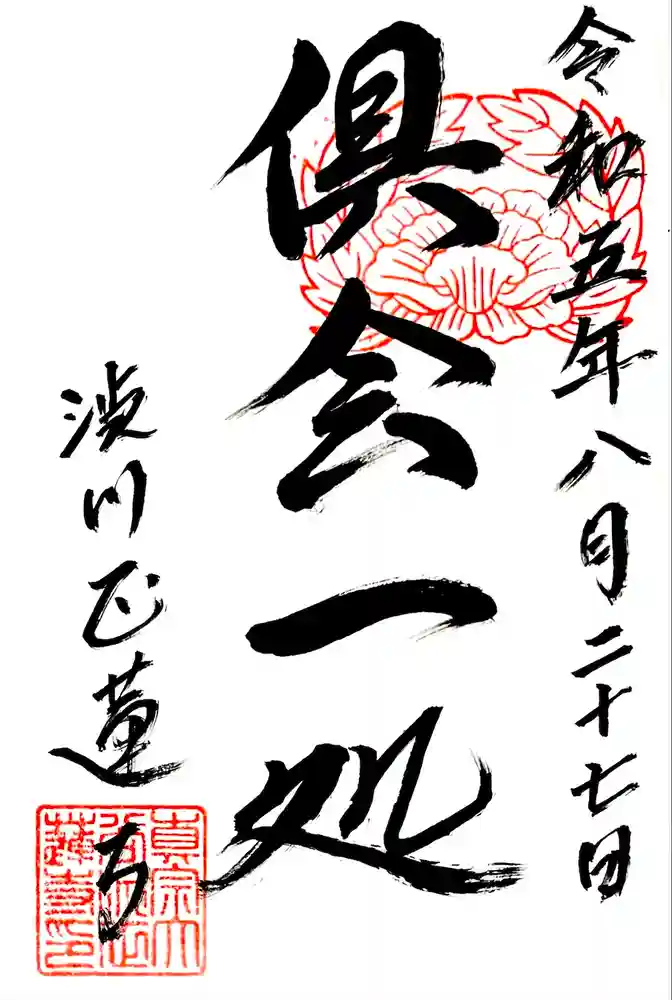 令和五年八月二十七日
倶会一処
川正蓮寺
真宗大